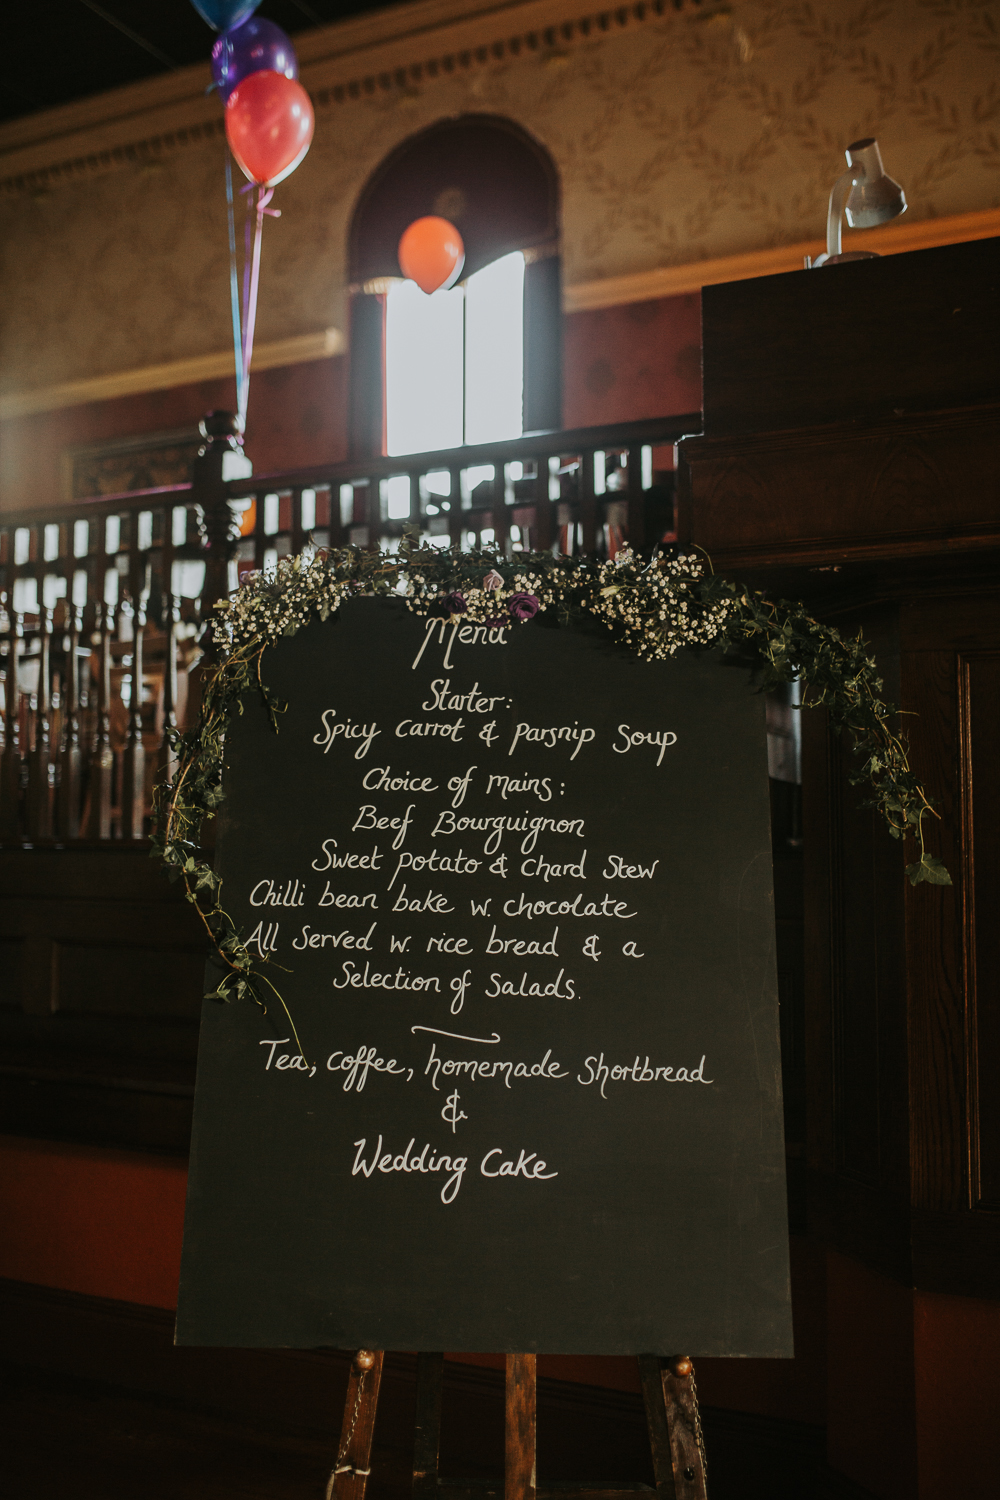 Menu
Starter:
Spicy carrot & parsnip Soup
Choice of mains:
Beef Bourguignon
Sweet potato & chard Stew
Chilli bean bake w. chocolate
All Served w. rice bread & a
Selection of Salads.
Tea, coffee, homemade Shortbread
&
Wedding Cake